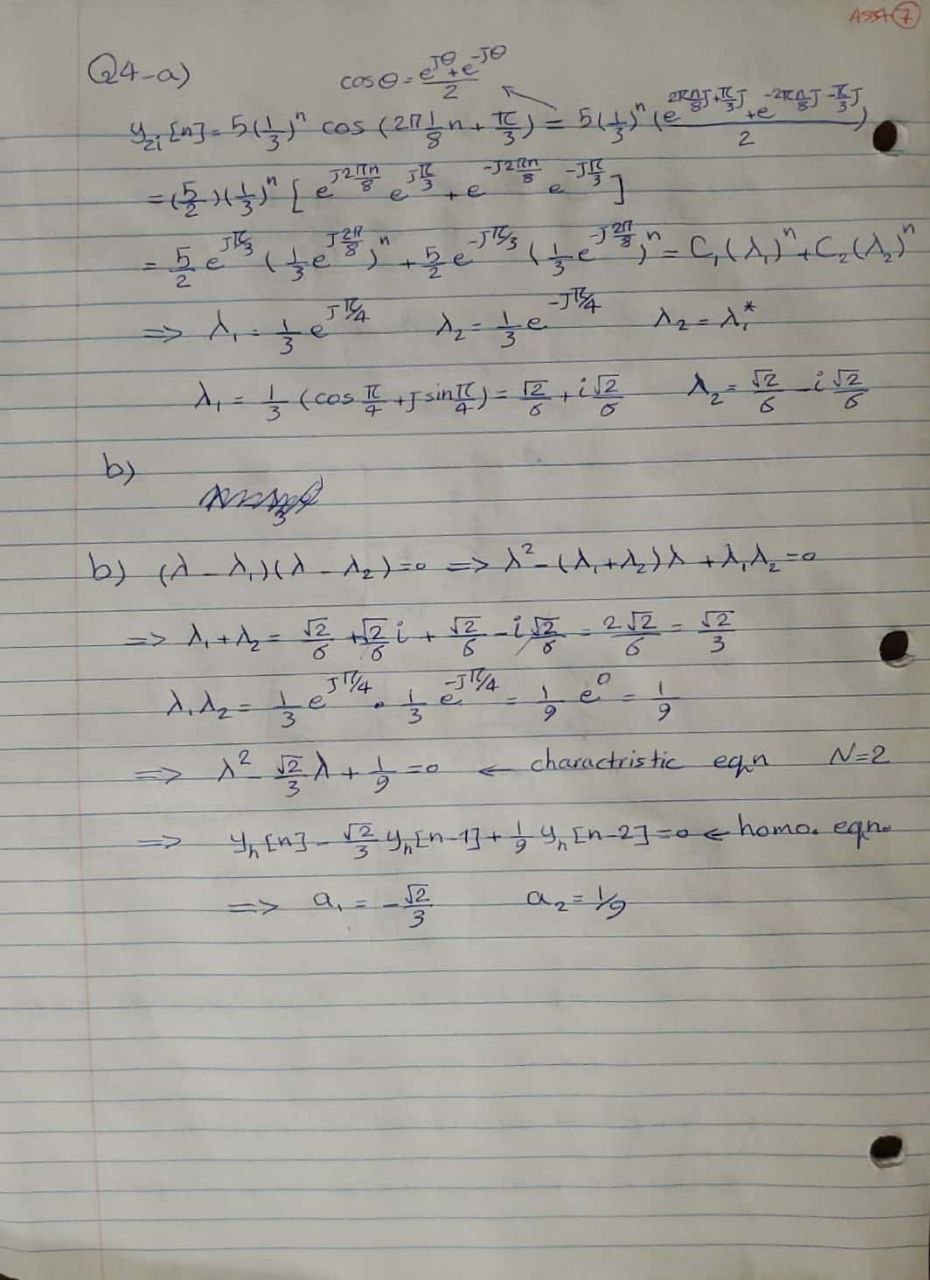 ASSA 7
Q4-a)
cosθ = (e^{Jθ} + e^{-Jθ})/2
y_{zi}[n] = 5(1/3)^n cos(2π 1/8 n + π/3) = 5(1/3)^n (e^{2πn/8 J + π/3 J} + e^{-2πn/8 J - π/3 J})/2
= (5/2)(1/3)^n [e^{J2πn/8} e^{Jπ/3} + e^{-J2πn/8} e^{-Jπ/3}]
= 5/2 e^{Jπ/3} (1/3 e^{J2π/8})^n + 5/2 e^{-Jπ/3} (1/3 e^{-J2π/8})^n = C₁(λ₁)^n + C₂(λ₂)^n
=> λ₁ = 1/3 e^{Jπ/4} λ₂ = 1/3 e^{-Jπ/4} λ₂ = λ₁*
λ₁ = 1/3 (cos π/4 + J sin π/4) = √2/6 + i√2/6 λ₂ = √2/6 - i√2/6
b)
b) (λ - λ₁)(λ - λ₂) = 0 => λ² - (λ₁+λ₂)λ + λ₁λ₂ = 0
=> λ₁ + λ₂ = √2/6 + √2/6 i + √2/6 - i√2/6 = 2√2/6 = √2/3
λ₁λ₂ = 1/3 e^{Jπ/4} · 1/3 e^{-Jπ/4} = 1/9 e^0 = 1/9
=> λ² - √2/3 λ + 1/9 = 0 ← charactristic eqn N=2
=> y_h[n] - √2/3 y_h[n-1] + 1/9 y_h[n-2] = 0 ← homo. eqn.
=> a₁ = -√2/3 a₂ = 1/9